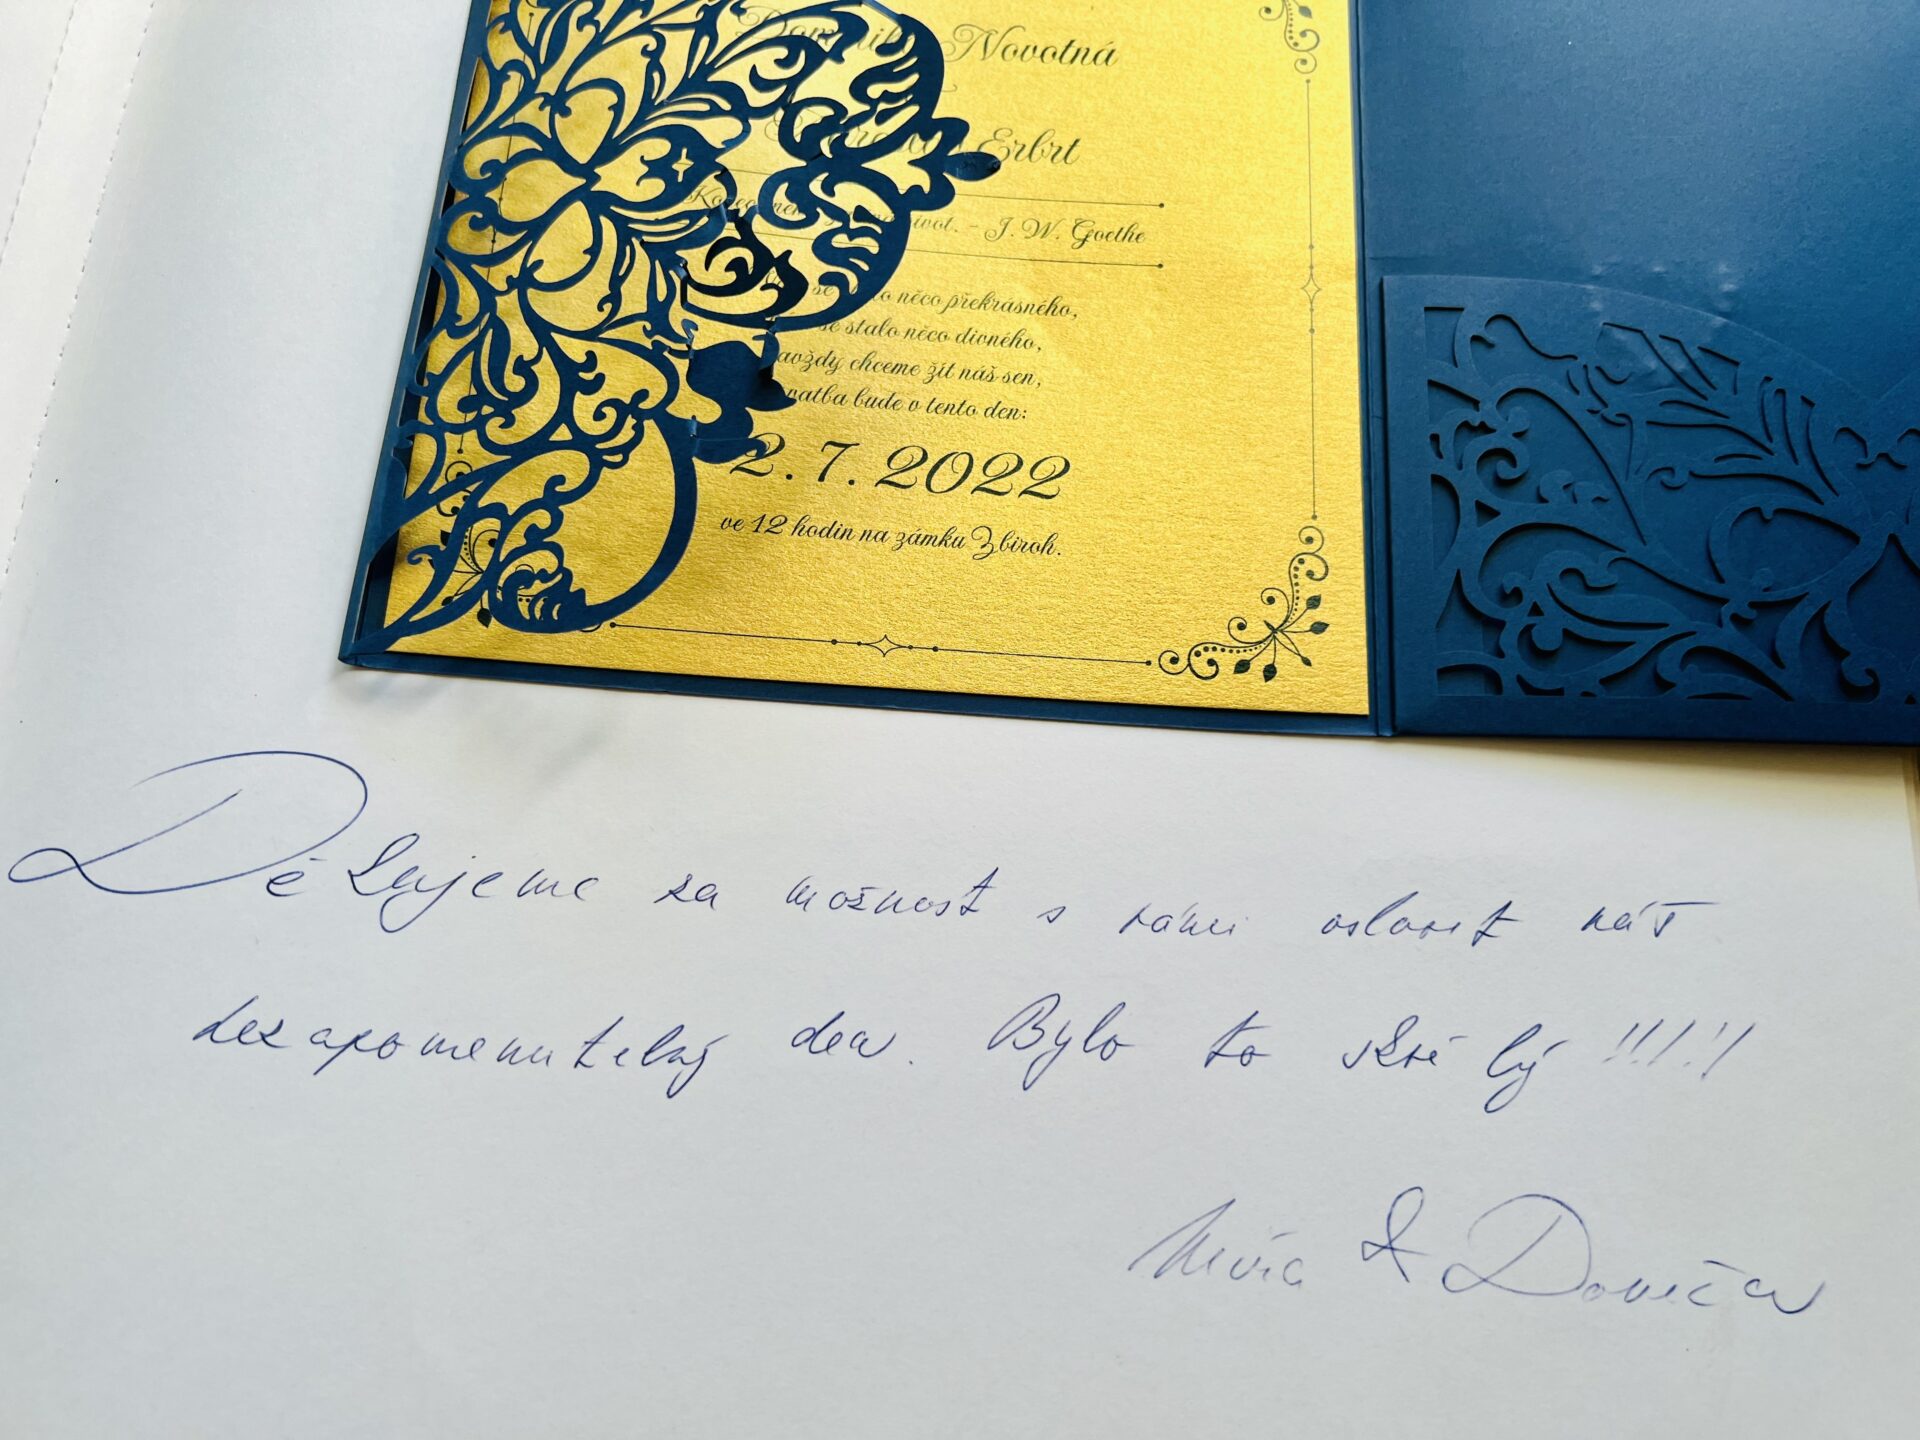 Novotná
Erbrt
život. - J. W. Goethe
se stalo něco překrásného,
se stalo něco divného,
navždy chceme žít náš sen,
svatba bude v tento den:
2. 7. 2022
ve 12 hodin na zámku Zbiroh.
Děkujeme za možnost s vámi oslavit náš
nezapomenutelný den. Bylo to skvělý !!!!!
Mirča & Domča